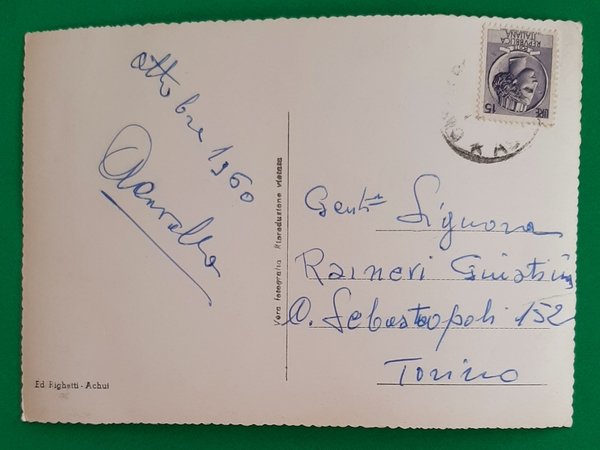 ottobre 1960
Gent.ma Signora
Raineri
C. Sebastopoli 152
Torino
Vera fotografia Riproduzione vietata
Ed Righetti - Achui
REPVBBLICA
ITALIANA
LIRE 15